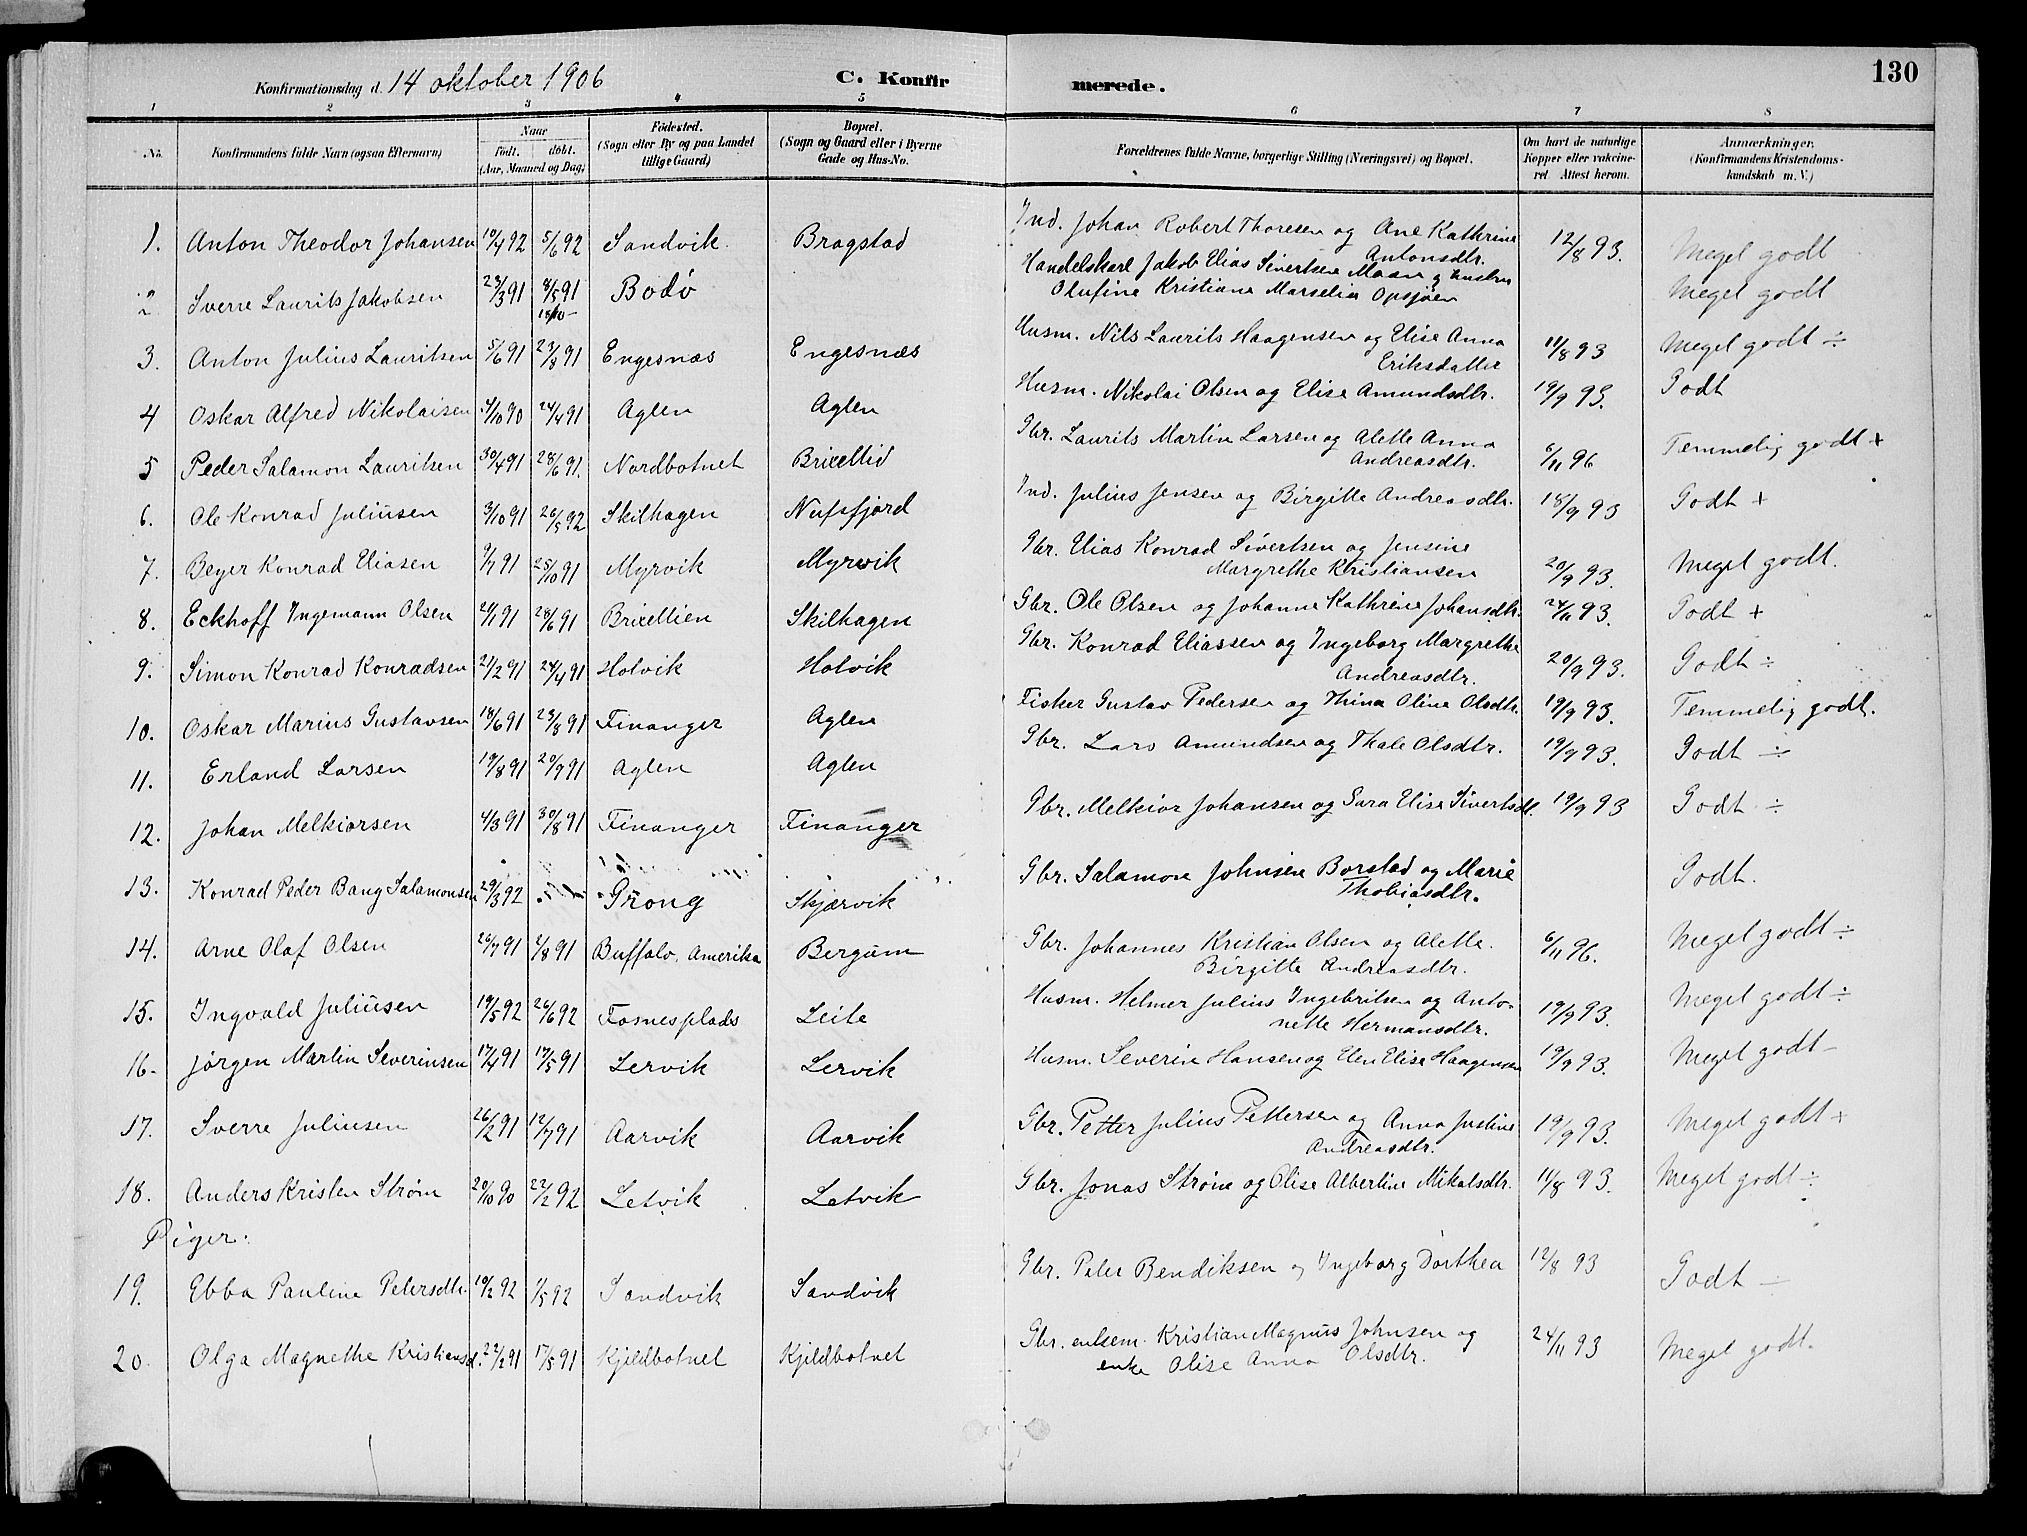 130
Konfirmationsdag d. 14 oktober 1906 C. Konfir merede.
1 2 3 4 5 6 7 8
No. Konfirmandens fulde Navn (ogsaa Efternavn) Naar Født. døbt. (Aar, Maaned og Dag) Fødested. (Sogn eller By og paa Landet tillige Gaard) Bopæl. (Sogn og Gaard eller i Byerne Gade og Hus-No. Forældrenes fulde Navne, borgerlige Stilling (Næringsvei) og Bopæl. Om havt de naturlige Kopper eller vakcineret. Attest herom. Anmærkninger. (Konfirmandens Kristendomskundskab m. V.)
1. Anton Theodor Johansen 10/4 92 5/6 92 Sandvik Bragstad Ind. Johan Robert Thoresen og Ane Kathrine Antonsdtr. 12/8 93. Meget godt
2 Sverre Laurits Jakobsen 23/3 91 8/5 91 Bodø Handelskarl Jakob Elias Sivertsen Maan og hustru Olufine Kristiane Marselia Opsjøen Meget godt
3. Anton Julius Lauritsen 5/6 91 23/8 91 Engesnæs Engesnæs Husm. Nils Laurits Haagensen og Elise Anna Eriksdatter 11/8 93 Meget godt ÷
4 Oskar Alfred Nikolaisen 4/10 90 24/4 91 Aglen Aglen Husm. Nikolai Olsen og Elise Amundsdtr. 19/9 93. Godt
5 Peder Salamon Lauritsen 30/4 91 28/6 91. Nordbotnet Brixellid Gbr. Laurits Martin Larsen og Alette Anna Andreasdtr. 6/11 96 Temmelig godt +
6. Ole Konrad Juliusen 3/10 91 26/5 92 Skilhagen Nufsfjord Ind. Julius Jensen og Birgitte Andreasdtr. 18/9 93 Godt +
7. Beyer Konrad Eliasen 9/7 91 25/10 91 Myrvik Myrvik Gbr. Elias Konrad Sivertsen og Jensine Margrethe Kristiansen 20/9 93. Meget godt.
8. Eckhoff Ingemann Olsen 21/1 91 28/6 91 Brixellien Skilhagen Gbr. Ole Olsen og Johanne Kathrine Johansdtr. 24/11 93. Godt +
9. Simon Konrad Konradsen 21/2 91 24/4 91 Holvik Holvik Gbr. Konrad Eliassen og Ingeborg Margrethe Andreasdtr. 20/9 93. Godt ÷
10. Oskar Marius Gustavsen 18/6 91 23/8 91 Finanger Aglen Fisker Gustav Pedersen og Thina Oline Olsdtr. 19/9 93. Temmelig godt.
11. Erland Larsen 19/8 91 20/9 91 Aglen Aglen Gbr. Lars Amundsen og Thale Olsdtr. 19/9 93. Godt ÷
12. Johan Melkiorsen 4/3 91 30/8 91 Finanger Finanger Gbr. Melkior Johansen og Sara Elise Sivertsdt. 19/9 93 Godt ÷
13. Konrad Peder Bang Salamonsen 29/3 92 Grong Skjærvik Gbr. Salamon Johnsen Borstad og Marie Thobiasdtr. Godt.
14. Arne Olaf Olsen 26/7 91 2/8 91 Buffalo, Amerika Bergum Gbr. Johannes Kristian Olsen og Alette Birgitte Andreasdtr. 6/11 96. Meget godt ÷
15. Ingvald Juliusen 19/5 92 26/6 92 Fosnesplads Leite Husm. Helmer Julius Ingebritsen og Antonette Hermansdtr. 19/9 93. Meget godt ÷
16. Jørgen Martin Severinsen 17/4 91 17/5 91 Lervik Lervik Husm. Severin Hansen og Elen Elise Haagensen 19/9 93. Meget godt -
17. Sverre Juliusen 26/2 91 12/7 91 Aarvik Aarvik Gbr. Petter Julius Pettersen og Anna Justine Andreasdtr. 19/9 93. Meget godt +
18. Anders Kristen Strøm 20/10 90 22/2 92 Letvik Letvik Gbr. Jonas Strøm og Olise Albertine Mikalsdtr. 11/8 93. Meget godt ÷
Piger:
19. Ebba Pauline Petersdtr. 10/2 92 1/5 92 Sandvik Sandvik Gbr. Peter Bendiksen og Ingeborg Dorthea 12/8 93 Godt ÷
20. Olga Magnethe Kristiansd. 22/2 91 17/5 91 Kjildbotnet Kjildbotnet Gbr. enksem. Kristian Magnus Johnsen og enke Olise Anna Olsdtr. 24/11 93 Meget godt.